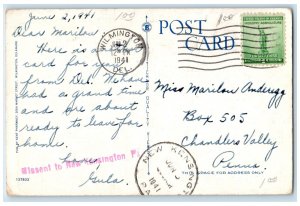 June 2, 1941
Dear Marilou
Here is a
card for you
from Del. We have
had a grand time
and are about
ready to leave for
home.
Love
Gula.
137803
Missent to New Kensington Pa.
POST
CARD
WILMINGTON
1941
DEL.
NEW KENSINGTON
JUN
1941
PA
Miss Marilou Anderegg
Box 505
Chandlers Valley
Penna.
THIS SPACE FOR ADDRESS ONLY